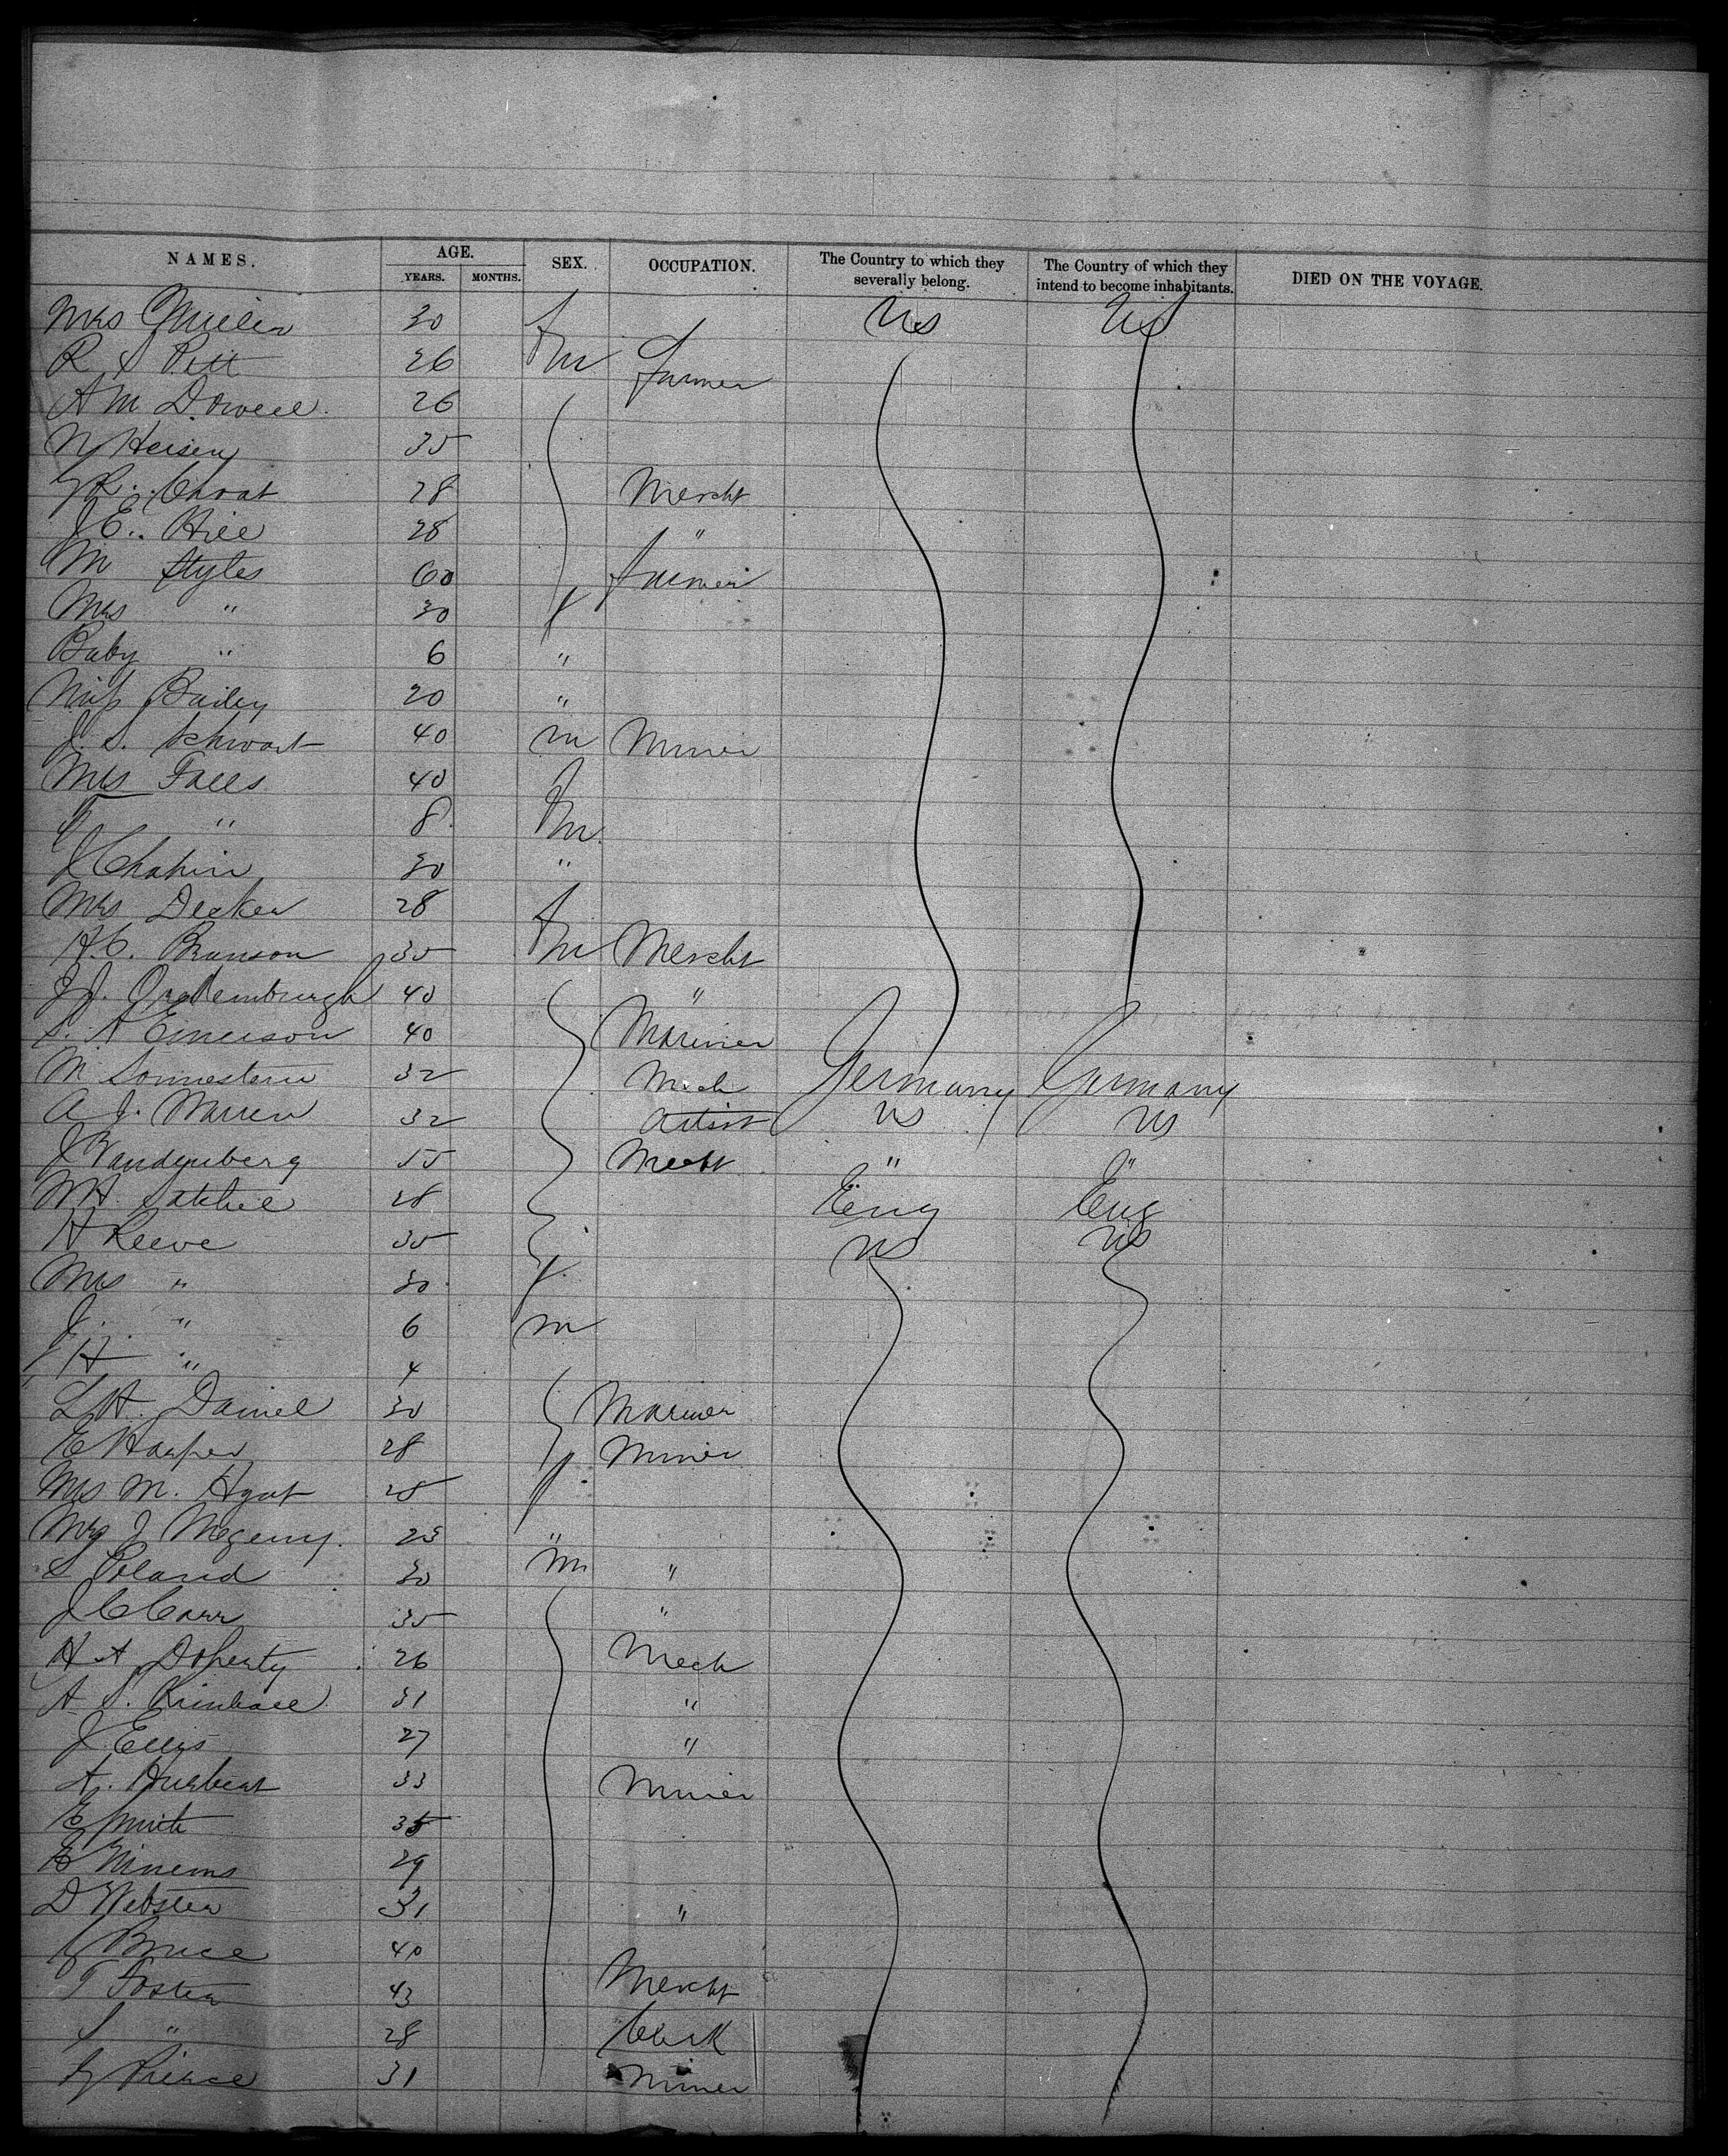 NAMES. AGE. SEX. OCCUPATION. The Country to which they severally belong. The Country of which they intend to become inhabitants. DIED ON THE VOYAGE.
YEARS. MONTHS.
Mrs Miller 30 f US US
R S Pitt 26 m Farmer
A M Dowell 26
N Heisey 35
G R. Choat 28 Mercht
J E. Hill 28 "
M Styles 60 Farmer
Mrs " 30 f
Baby " 6 "
Miss Bailey 20 "
J. S. Schwart 40 m Miner
Mrs Falls 40 f
" 8 m
J Chapin 30 "
Mrs Decker 28 f
H. C. Branson 35 m Mercht
J J. 40 "
S. A Emerson 40 Mariner
M Sonnestern 32 Mech Germany Germany
A J. Warren 32 Artist US US
J Vandenberg 55 Mercht " "
W H. Satchel 28 Eng Eng
H Reeve 35 US US
Mrs " 30 f
J. " 6 m
H " 4
L H. Daniel 30 Mariner
E Harper 28 Miner
Mrs M. Hyat 25 f
Mrs J Megemy. 23 "
S Poland 30 m "
J C Carr 35 "
H A Doherty 26 Mech
A S. Kimball 31 "
J Ellis 27 "
A. Hurbert 33 Miner
E Smith 35
29
D Webster 31 "
G Bruce 40
T Foster 43 Mercht
S " 28 Clerk
G Pierce 31 Miner